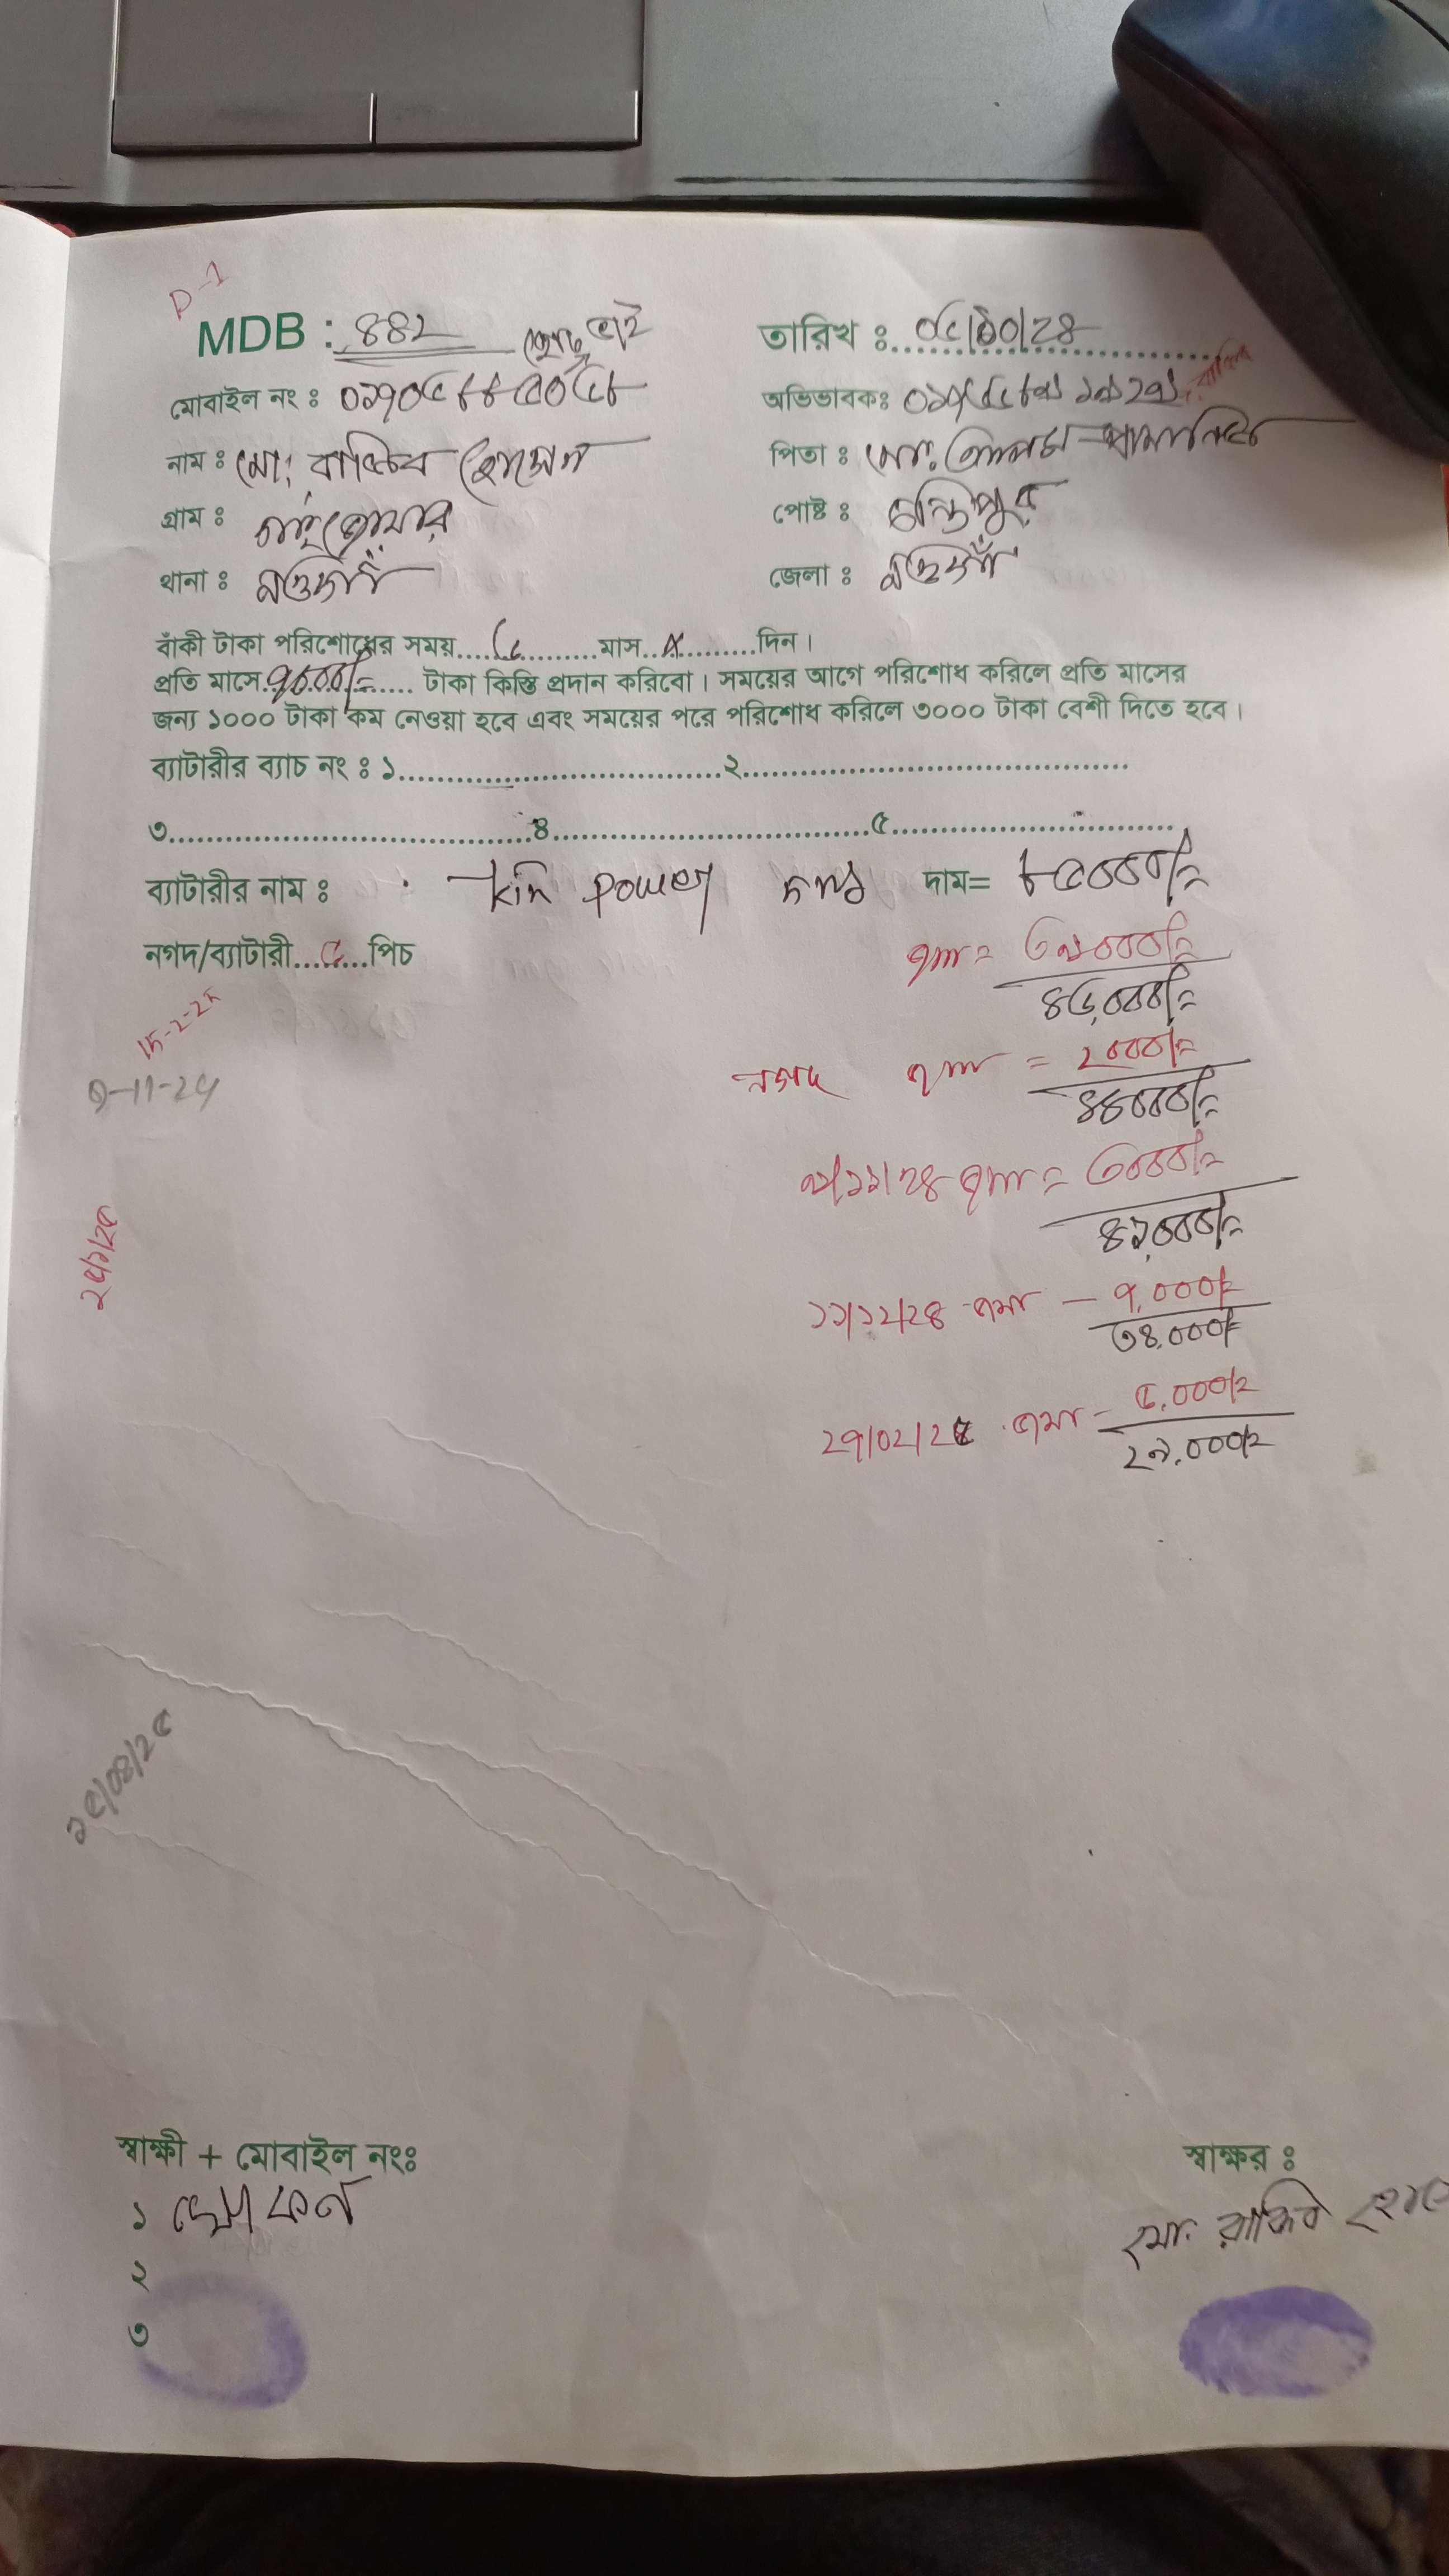 P-1
MDB : 882 ভাই
তারিখ ঃ ০৫/১০/২৪
মোবাইল নং ঃ
অভিভাবকঃ
নাম ঃ মো: রাকিব হোসেন
পিতা ঃ মো:
গ্রাম ঃ
পোষ্ট ঃ চন্ডিপুর
থানা ঃ নওগাঁ
জেলা ঃ নওগাঁ
বাঁকী টাকা পরিশোধের সময়....৬.........মাস..x..........দিন।
প্রতি মাসে ৭৬০০/= টাকা কিস্তি প্রদান করিবো। সময়ের আগে পরিশোধ করিলে প্রতি মাসের
জন্য ১০০০ টাকা কম নেওয়া হবে এবং সময়ের পরে পরিশোধ করিলে ৩০০০ টাকা বেশী দিতে হবে।
ব্যাটারীর ব্যাচ নং ঃ ১........................................২................................................
৩.............................................৪........................................৫...................................
ব্যাটারীর নাম ঃ kin power দাম= ৮৫০০০/=
নগদ/ব্যাটারী....৫....পিচ
জমা = ৩৯০০০/=
৪৬,০০০/=
15-2-25
নগদ জমা = ২০০০/=
৪৪০০০/=
9-11-24
০৯/১১/২৪ জমা = ৩০০০/=
৪১,০০০/=
১১/১২/২৪ জমা — ৭,০০০/=
৩৪,০০০/=
২৭/০২/২৫ জমা - ৫,০০০/=
২৯,০০০/=
১৫/০৪/২৫
স্বাক্ষী + মোবাইল নংঃ
স্বাক্ষর ঃ
১
মো: রাকিব
২
৩